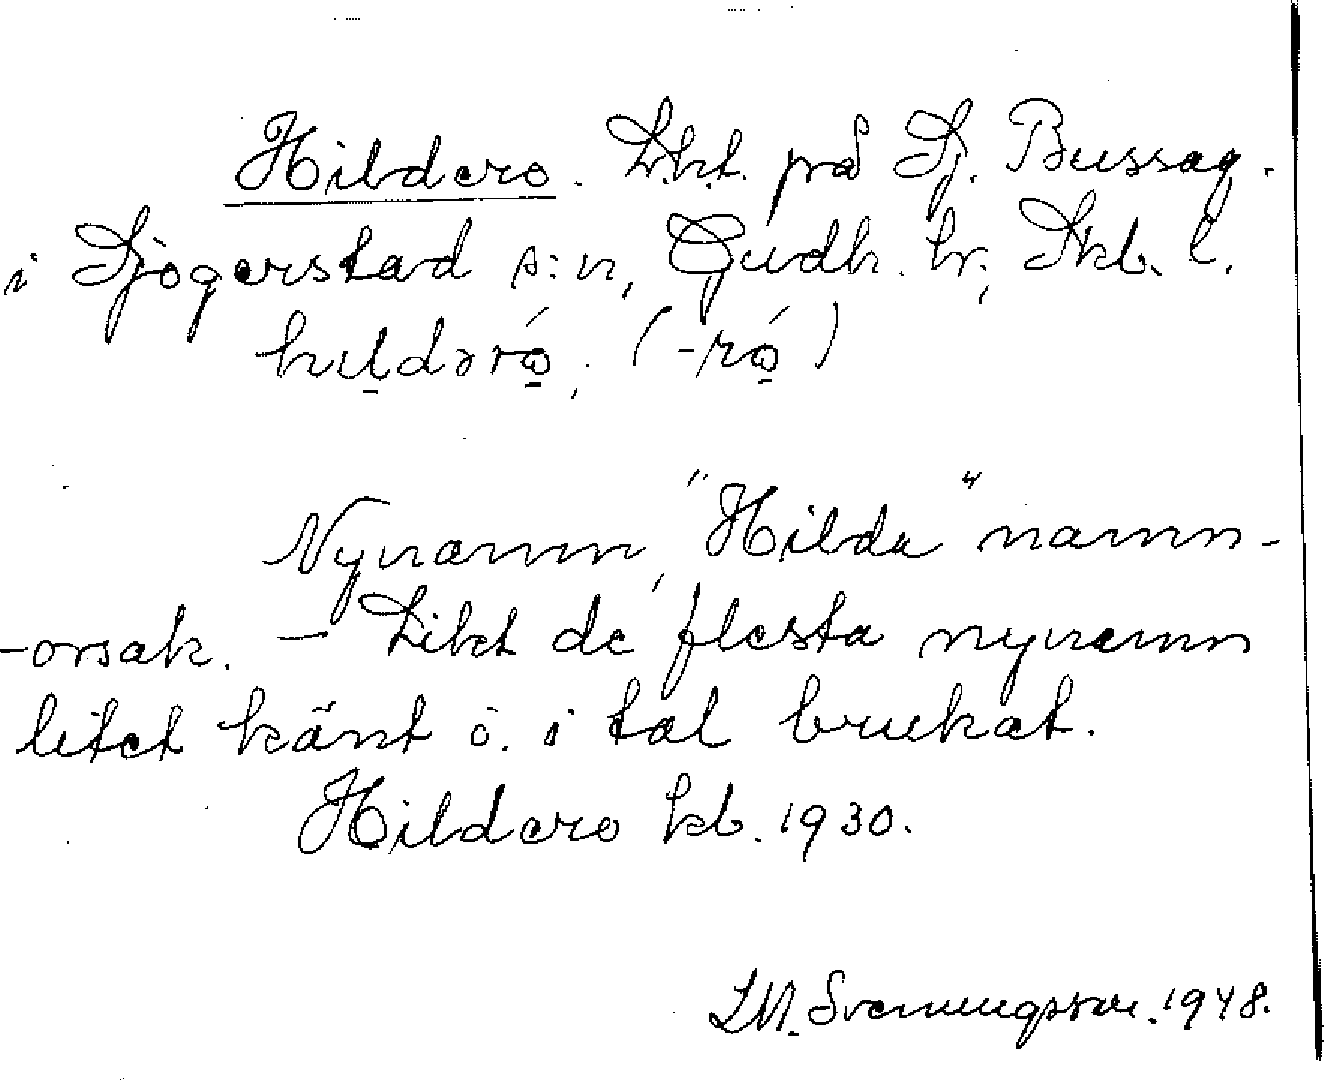 Hildero. Lht. på Sj. Bussag.
i Sjogerstad s:n, Gudh. hr, Skb. l.
hildəró, (-ró)
Nynamn, "Hilda" namn-
-orsak. - Likt de flesta nynamn
litet känt o. i tal brukat.
Hildero kb. 1930.
LM. Svenungsson. 1948.